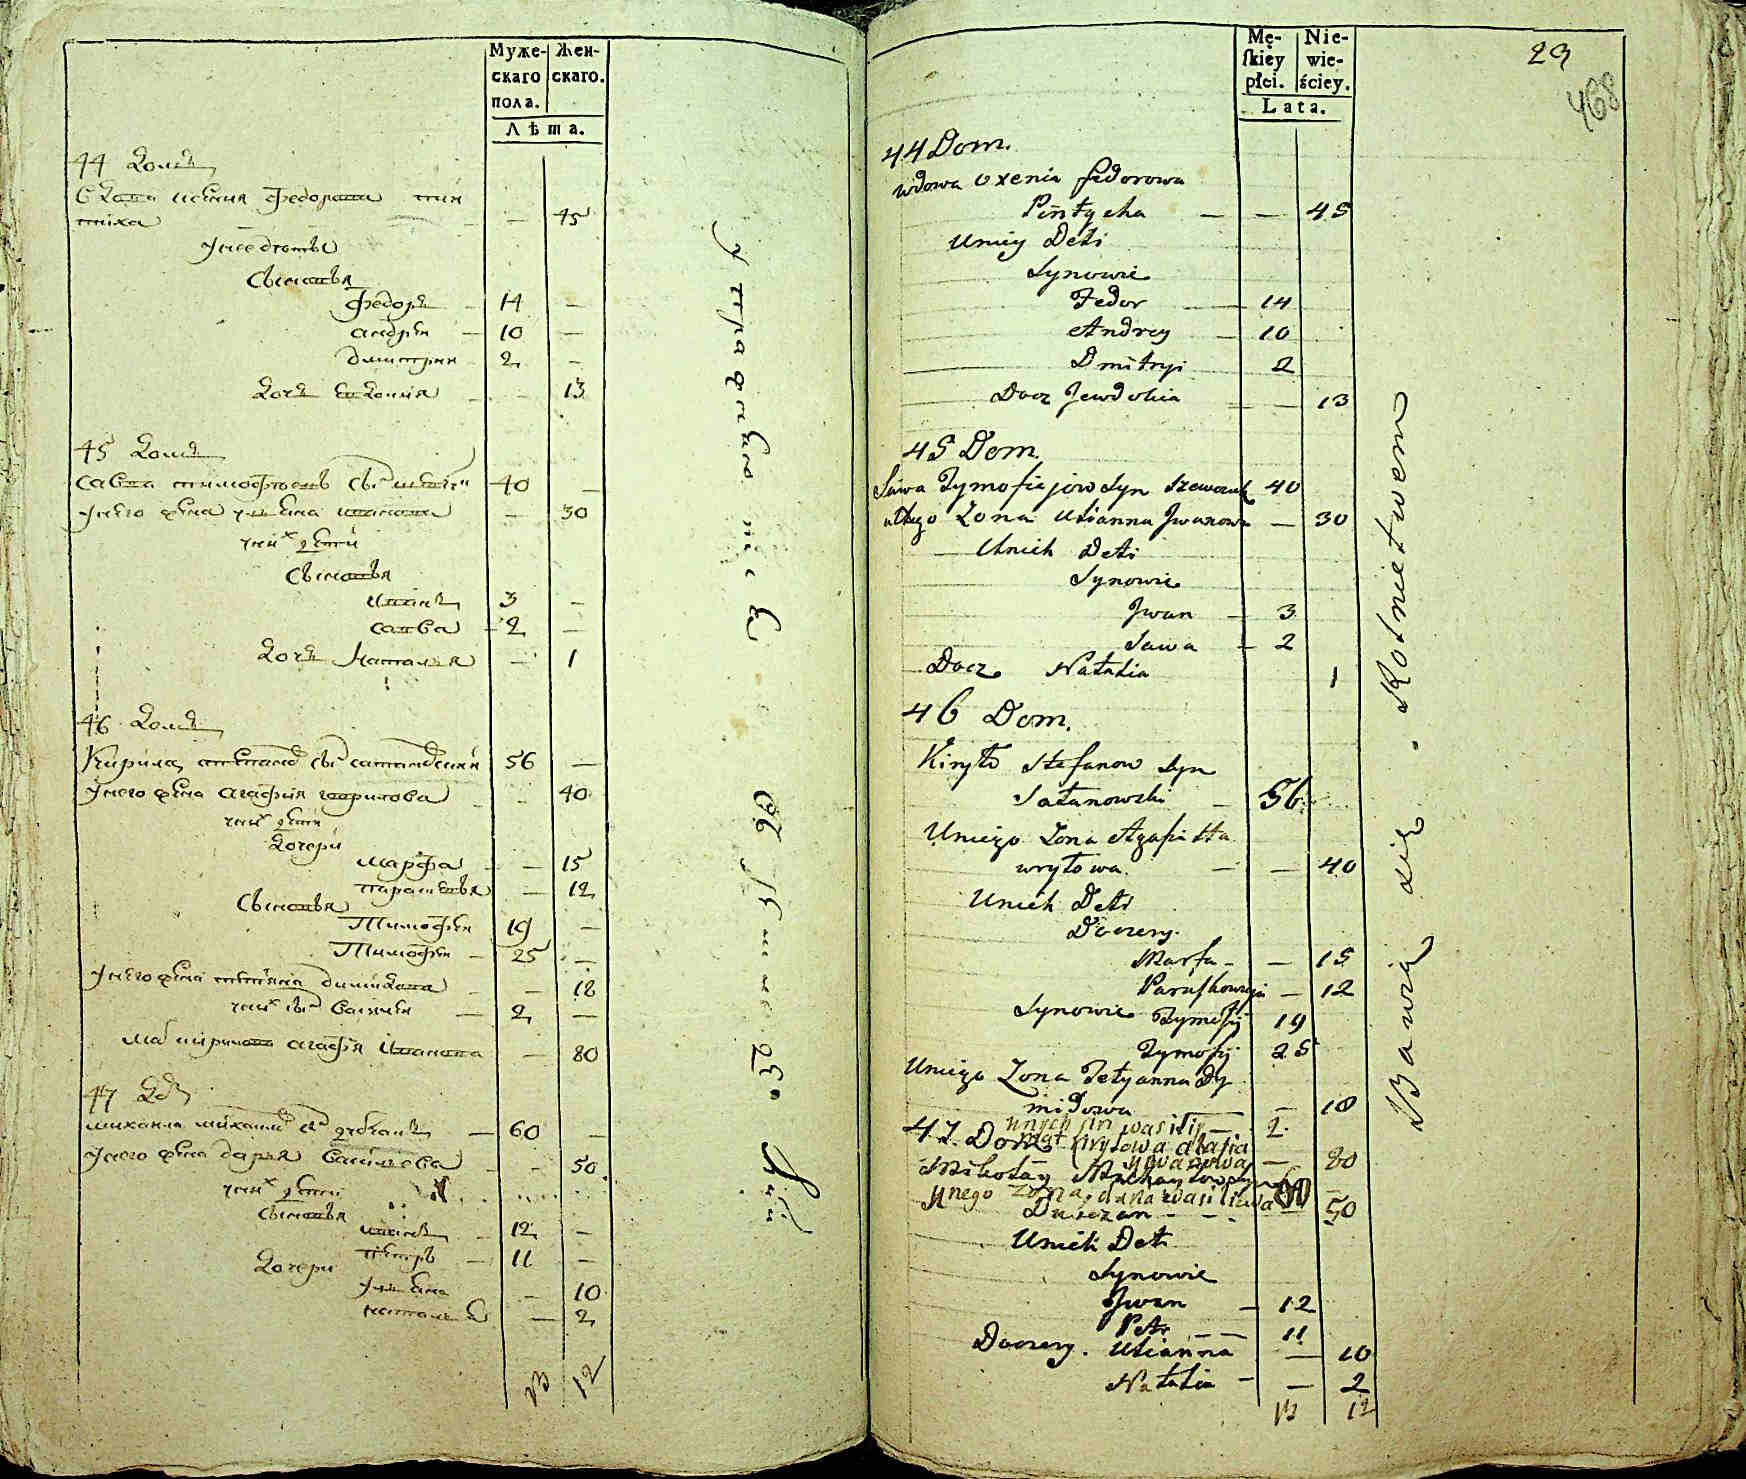 Муже-
скаго
пола.
Жен-
скаго.
Лѣта.
44 домъ
вдова ксения федорова пин
тиха — 45
у нее дети
Сыновья
федоръ — 14 —
андрей — 10 —
дмитрии — 2 —
дочь евдокия — 13
45 домъ
савва тимофѣевъ сынъ 40 —
у него жена ульяна иванова — 30
у них дети
Сыновья
иванъ 3 —
савва — 2 —
дочь Наталья — 1
46 домъ
Кирила степановъ сынъ сатановский 56 —
у него жена агафия гаврилова — 40
у них дети
дочери
марфа — 15
парасковья — 12
Сыновья
Тимофей 19 —
Тимофей — 25 —
у него жена татьяна демидова — 18
у них сынъ василий — 2 —
мать кирилова агафия иванова — 80
47 домъ
михаила михайловъ сынъ — 60 —
у него жена дарья василева — 50
у них дети
сыновья
иванъ 12 —
петръ — 11 —
дочери
ульяна — 10
наталья — 2
13 12
Mę-
skiey
płci.
Nie-
wie-
ściey.
Lata.
29
468
44 Dom.
wdowa Oxenia fedorowa
Pintycha — — 45
Uniey Deti
Synowie
Fedor — 14
Andrey — 10
Dmitryi 2
Docz Jewdokia — — 13
45 Dom.
Sawa Tymofiejow Syn Szewczuk 40
Zona Ulianna Jwanowa — 30
Unich Deti
Synowie
Jwan — 3
Sawa — 2
Docz Natalia 1
46 Dom.
Kiryło Stefanow Syn
Satanowski — 56.
Uniego Zona Agafia Ha
wryłowa. — — 40
Unich Deti
Doczery.
Marfa — — 15
Paraskowija — 12
Synowie Tymofij 19
Tymofij 25
Uniego Zona Tetyanna Dy
midowa — 18
unych sin wasilij — 2.
mat kiryłowa agafia
ywanowa — 80
47. Dom
Mikołay Michayłow Syn
ynego zona daria wasilewa — 50
Unich Deti
Synowie
Jwan — 12
Petr — — 11
Doczery. Ulianna — 10
Natalia — — 2
13 12
Bawią się. Rolnictwem